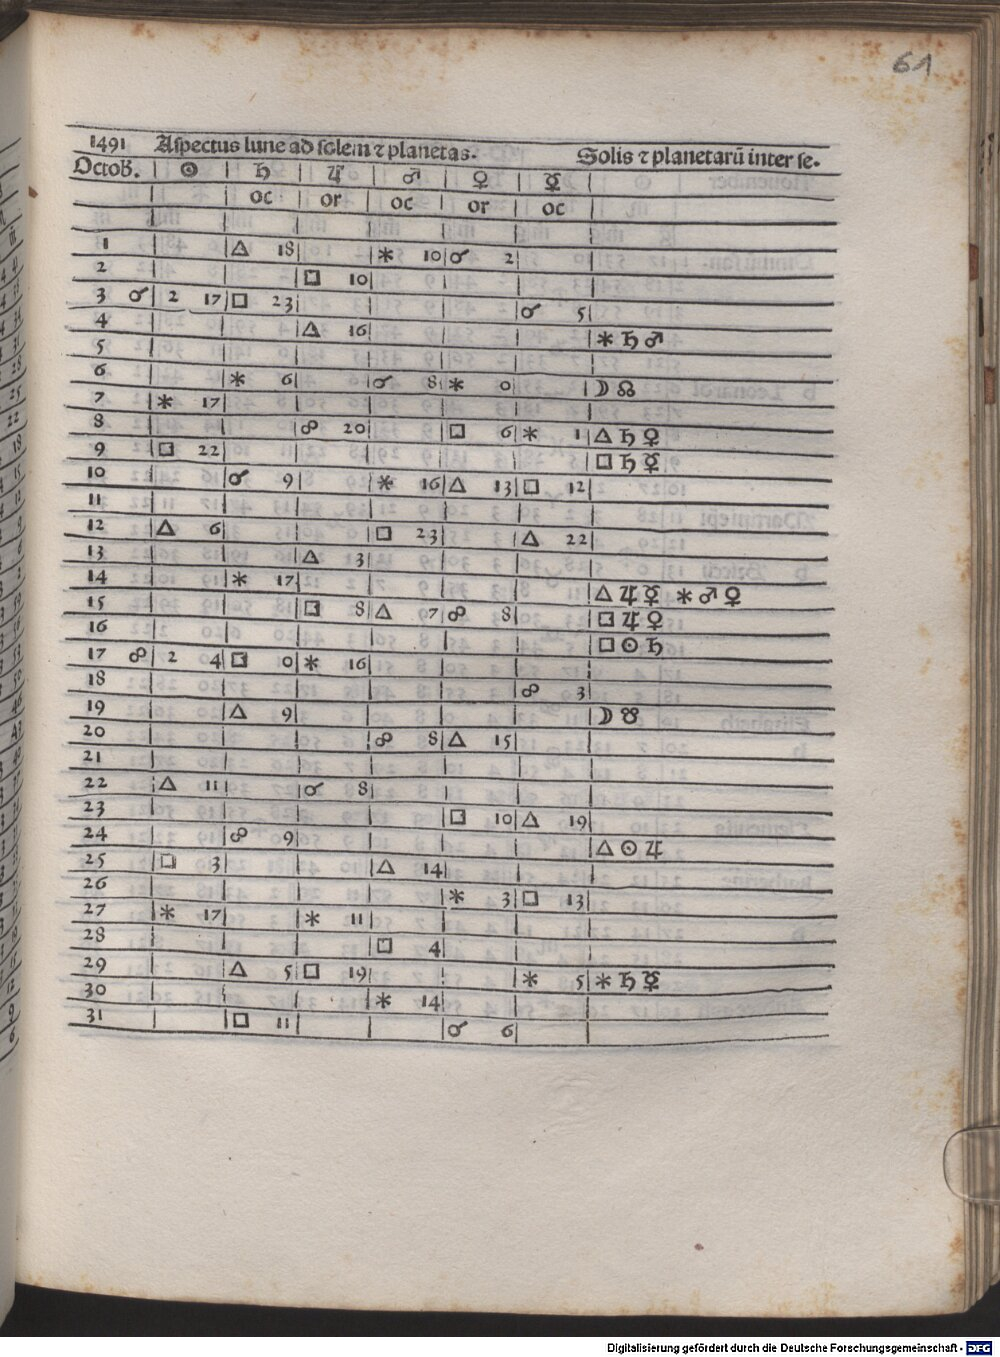 61
1491 Aspectus lune ad solem ⁊ planetas. Solis ⁊ planetarū inter se.
Octob. ☉ ♄ ♃ ♂ ♀ ☿
oc or oc or oc
1 △ 18 ⚹ 10 ☌ 2
2 □ 10
3 ☌ 2 17 □ 23 ☌ 5
4 △ 16 ⚹ ♄ ♂
5
6 ⚹ 6 ☌ 8 ⚹ 0 ☽ ☊
7 ⚹ 17
8 ☍ 20 □ 6 ⚹ 1 △ ♄ ♀
9 □ 22 □ ♄ ☿
10 ☌ 9 ⚹ 16 △ 13 □ 12
11
12 △ 6 □ 23 △ 22
13 △ 3
14 ⚹ 17 △ ♃ ☿ ⚹ ♂ ♀
15 □ 8 △ 7 ☍ 8 □ ♃ ♀
16 □ ☉ ♄
17 ☍ 2 4 □ 0 ⚹ 16
18 ☍ 3
19 △ 9 ☽ ☋
20 ☍ 8 △ 15
21
22 △ 11 ☌ 8
23 □ 10 △ 19
24 ☍ 9 △ ☉ ♃
25 □ 3 △ 14
26 ⚹ 3 □ 13
27 ⚹ 17 ⚹ 11
28 □ 4
29 △ 5 □ 19 ⚹ 5 ⚹ ♄ ☿
30 ⚹ 14
31 □ 11 ☌ 6
Digitalisierung gefördert durch die Deutsche Forschungsgemeinschaft - DFG